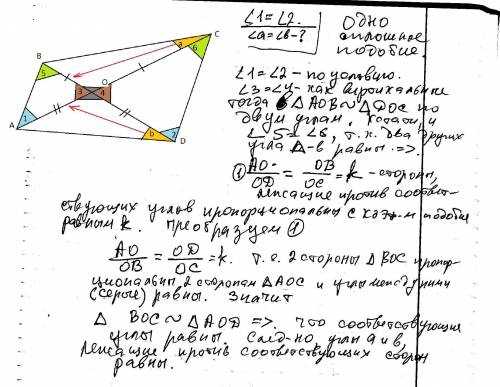 ∠1 = ∠2.
∠a = ∠b - ?
Одно
сплошное
подобие.
C
a
6
B
5
O
3 4
A
1
b
2
D
∠1 = ∠2 - по условию.
∠3 = ∠4 - как вертикальные
тогда △AOB ~ △DOC по
двум углам. Кстати, и
∠5 = ∠6, т.к. два других
угла △-в равны. =>.
① AO/OD = OB/OC = k - стороны,
лежащие против соответ-
ствующих углов пропорциональны с коэф-м подобия
равным k. Преобразуем ①
AO/OB = OD/OC = k. т.е. 2 стороны △BOC пропор-
циональны 2 сторонам △AOC и углы между ними
(серые) равны. Значит
△ BOC ~ △AOD => что соответствующие
углы равны. След-но углы a и b,
лежащие против соответствующих сторон
равны.